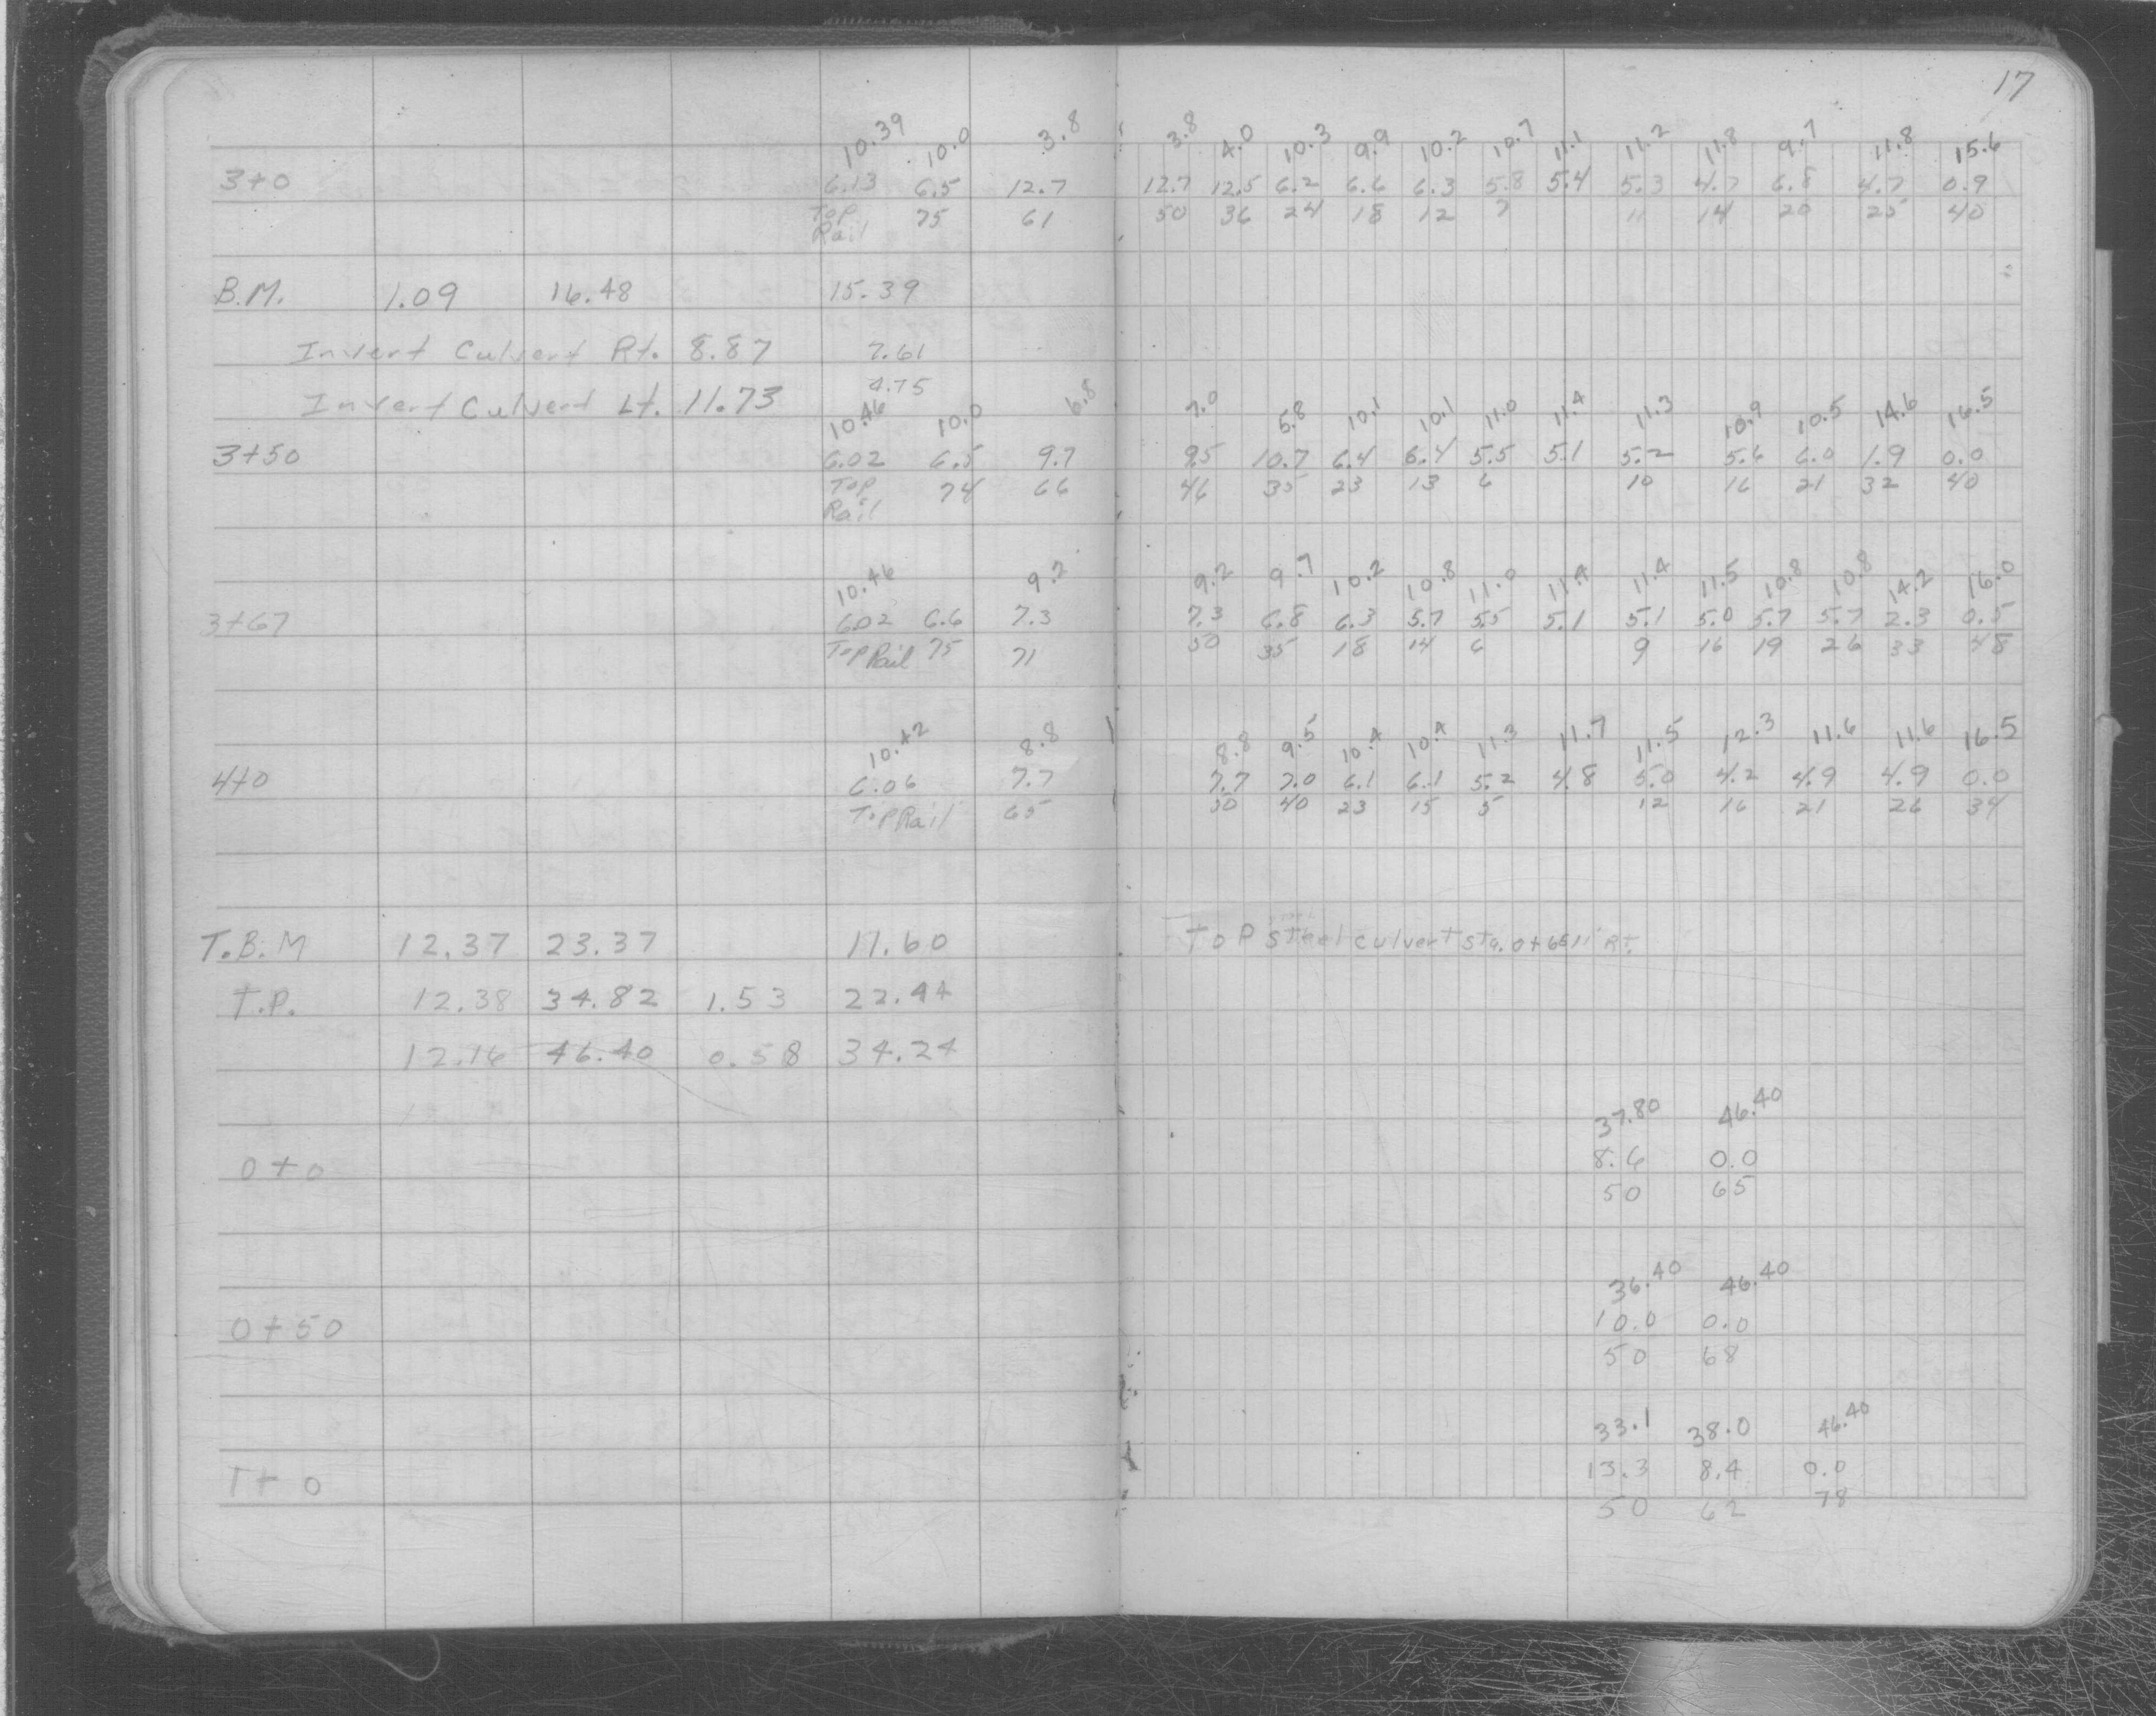 17
10.39 10.0 3.8 3.8 4.0 10.3 9.9 10.2 10.7 11.1 11.2 11.8 9.7 11.8 15.6
3+0 6.13 6.5 12.7 12.7 12.5 6.2 6.6 6.3 5.8 5.4 5.3 4.7 6.8 4.7 0.9
Top 75 61 50 36 24 18 12 7 11 14 20 25 40
Rail
B.M. 1.09 16.48 15.39
Invert Culvert Rt. 8.87 7.61
Invert Culvert Lt. 11.73 4.75
10.46 10.0 6.8 7.0 5.8 10.1 10.1 11.0 11.4 11.3 10.9 10.5 14.6 16.5
3+50 6.02 6.5 9.7 9.5 10.7 6.4 6.4 5.5 5.1 5.2 5.6 6.0 1.9 0.0
Top 74 66 46 35 23 13 6 10 16 21 32 40
Rail
10.46 9.2 9.2 9.7 10.2 10.8 11.0 11.4 11.4 11.5 10.8 10.8 14.2 16.0
3+67 6.02 6.6 7.3 7.3 6.8 6.3 5.7 5.5 5.1 5.1 5.0 5.7 5.7 2.3 0.5
Top Rail 75 71 50 35 18 14 6 9 16 19 26 33 48
10.42 8.8 8.8 9.5 10.4 10.4 11.3 11.7 11.5 12.3 11.6 11.6 16.5
4+0 6.06 7.7 7.7 7.0 6.1 6.1 5.2 4.8 5.0 4.2 4.9 4.9 0.0
Top Rail 65 50 40 23 15 5 12 16 21 26 34
T.B.M 12.37 23.37 11.60 Top Steel culvert Sta. 0+66 11' Rt.
T.P. 12.38 34.82 1.53 22.44
12.16 46.40 0.58 34.24
37.80 46.40
0+0 8.6 0.0
50 65
36.40 46.40
0+50 10.0 0.0
50 68
33.1 38.0 46.40
1+0 13.3 8.4 0.0
50 62 78